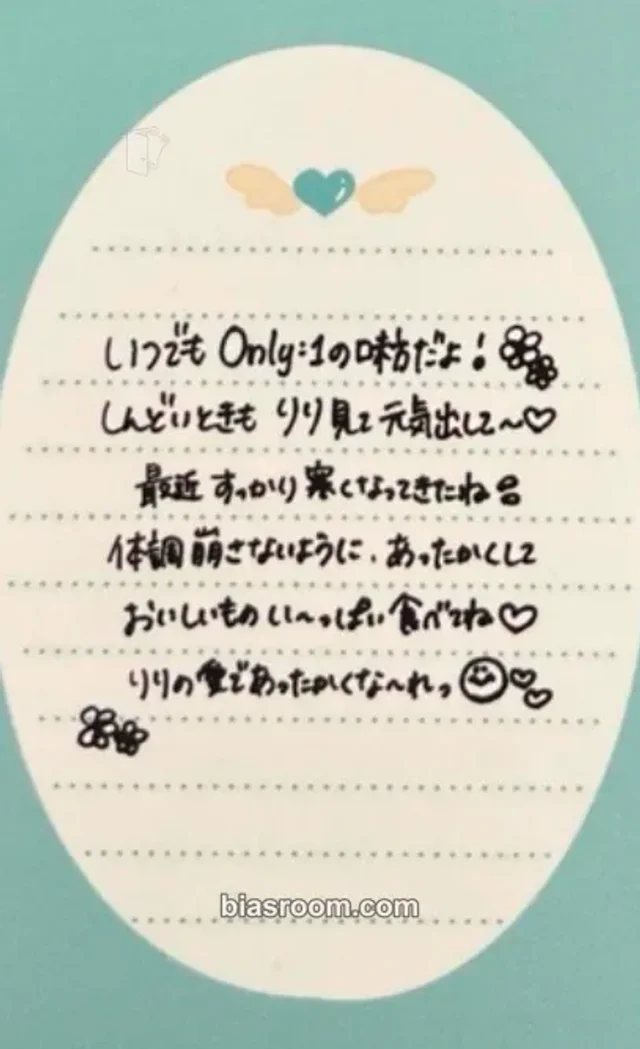 いつでも Only:1の味方だよ！
しんどいときも りり見て 元気出して〜♡
最近 すっかり 寒くなってきたね
体調崩さないように、あったかくして
おいしいもの い〜っぱい 食べてね♡
りりの愛であったかくな〜れっ
biasroom.com